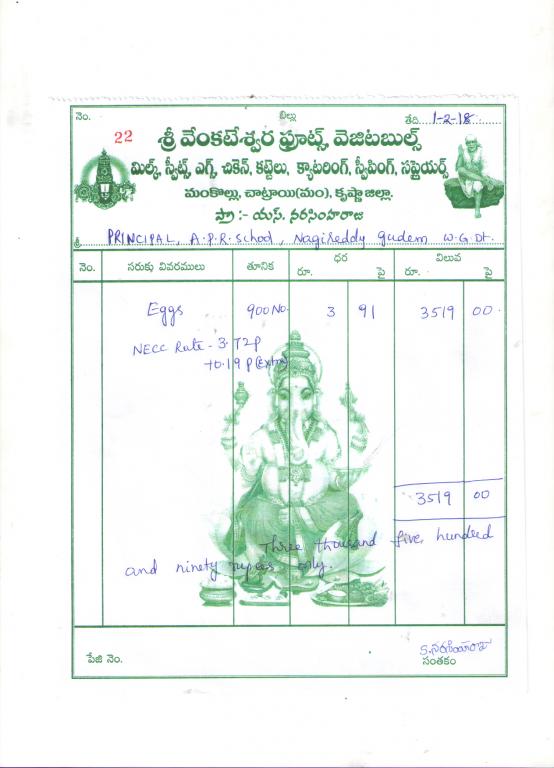 నెం. బిల్లు తేది 1-2-18
22 శ్రీ వేంకటేశ్వర ఫ్రూట్స్, వెజిటబుల్స్
మిల్క్, స్వీట్స్, ఎగ్స్, చికెన్, కట్టెలు, క్యాటరింగ్, స్వీపింగ్, సప్లైయర్స్
మంకొల్లు, చాట్రాయి(మం), కృష్ణా జిల్లా.
ప్రొ :- యస్. నరసింహరాజు
శ్రీ PRINCIPAL, A.P.R. School, Nagireddy gudem W.G.Dt.
నెం. సరుకు వివరములు తూనిక ధర విలువ
రూ. పై రూ. పై
Eggs 900 No. 3 91 3519 00
NECC Rate - 3.72p
+0.19 p (Extra)
3519 00
Three thousand five hundred
and ninety rupees only.
పేజి నెం. S. నరసింహరాజు
సంతకం